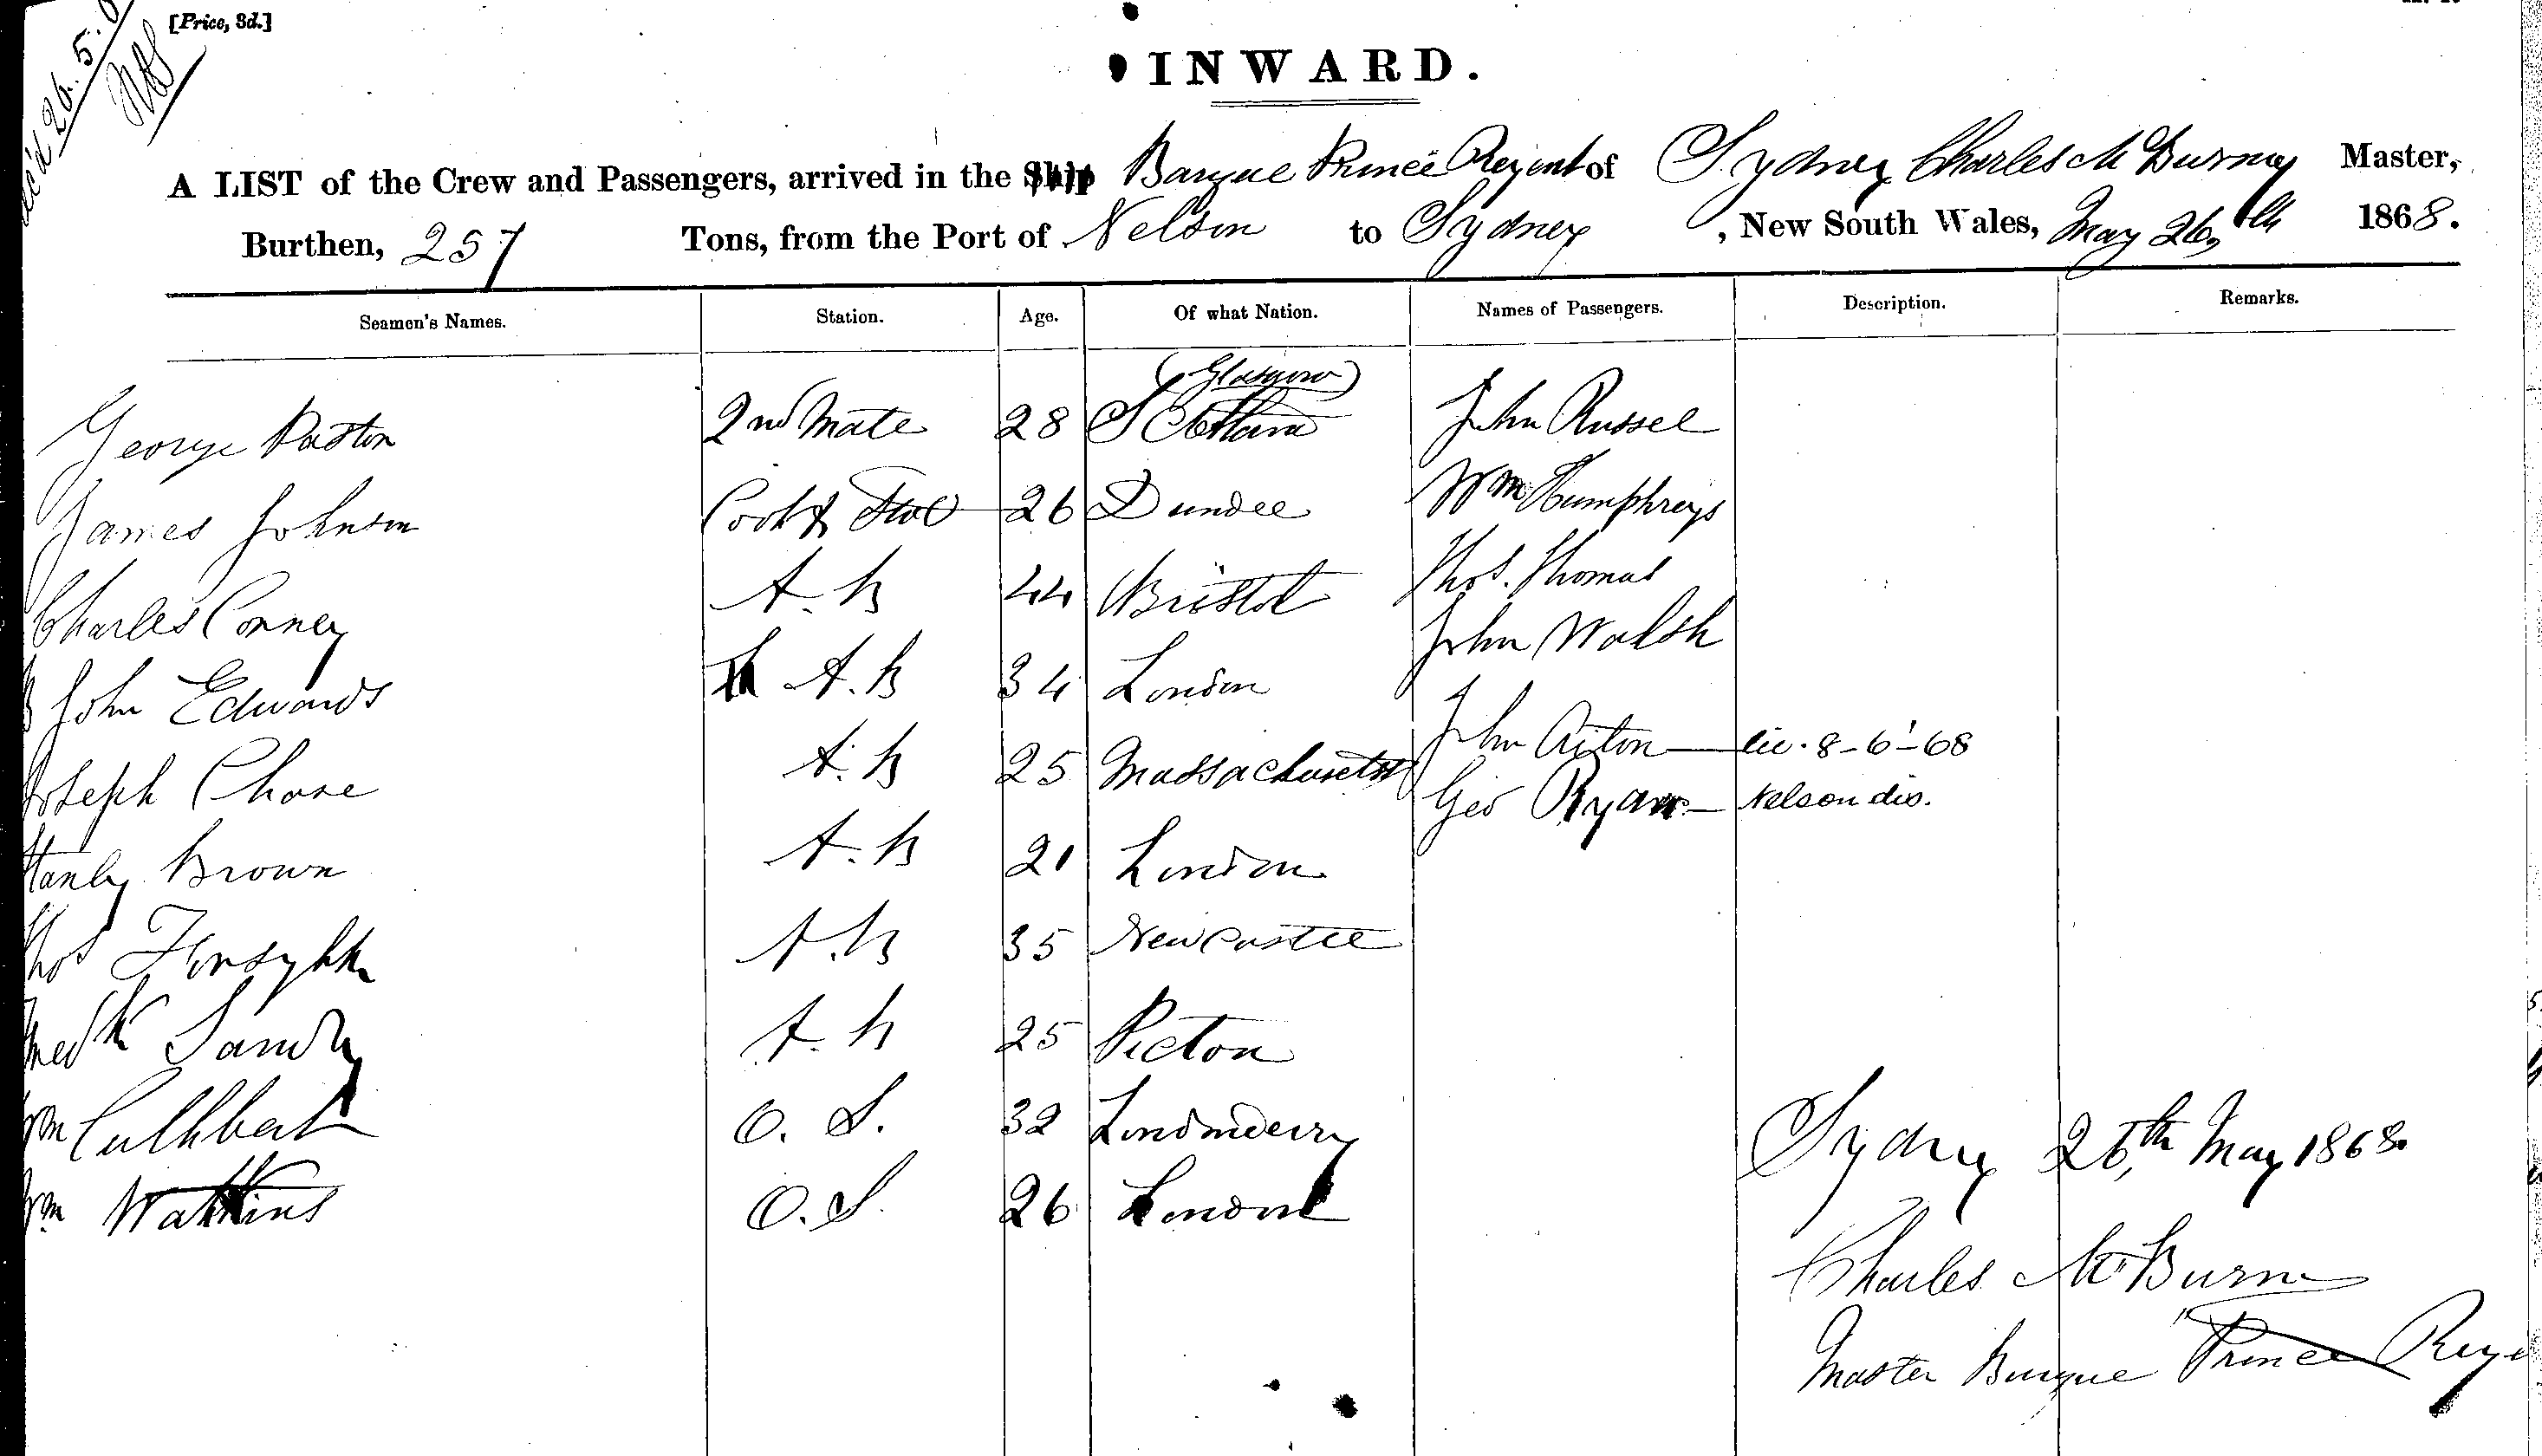 [Price, 3d.]
INWARD.
A LIST of the Crew and Passengers, arrived in the Ship Barque Prince Regent of Sydney Charles Mc Burney Master,
Burthen, 257 Tons, from the Port of Nelson to Sydney, New South Wales, May 26th 1868.
Seamen's Names. Station. Age. Of what Nation. Names of Passengers. Description. Remarks.
(Glasgow)
George Paston 2nd Mate 28 Scotland John Russel
James Johnson Cook & Stwd 26 Dundee Wm Humphreys
Charles Conney A.B 44 Bristol Thos. Thomas
John Edwards A.B 34 London John Walsh
Joseph Chase A.B 25 Massachusetts John Aiton lic. 8-6-68
Geo Ryan Nelson dis.
Stanley Brown A.B 21 London
Thos Forsyth A.B 35 Newcastle
Fredk Sandy A.B 25 Picton
Wm Cuthbert O.S. 32 Londonderry
Wm Watkins O.S. 26 London
Sydney 26th May 1868.
Charles McBurney
Master Barque Prince Rege